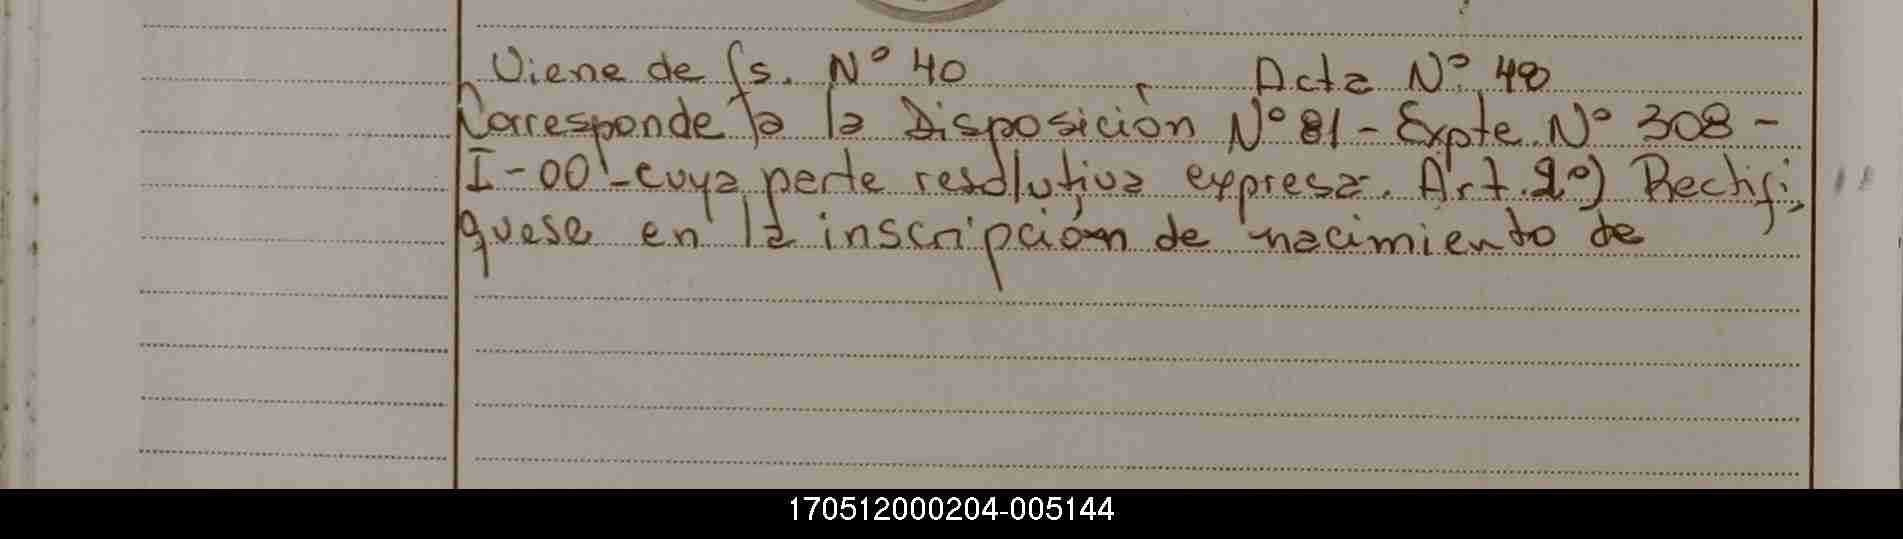 Viene de fs. Nº 40 Acta Nº 40
Corresponde a la Disposición Nº 81 - Expte. Nº 308 -
I - 00 - cuya parte resolutiva expresa. Art. 2º) Rectifi,
quese en la inscripción de nacimiento de
170512000204-005144